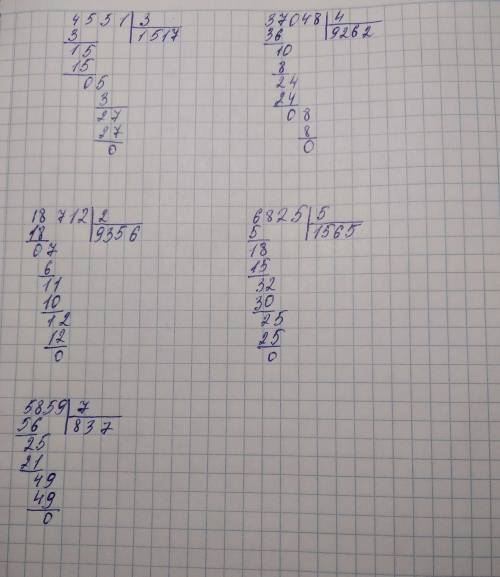 4551 3
3 1517
15
15
05
3
27
27
0
37048 4
36 9262
10
8
24
24
08
8
0
18 712 2
18 9356
07
6
11
10
12
12
0
6825 5
5 1565
18
15
32
30
25
25
0
5859 7
56 837
25
21
49
49
0